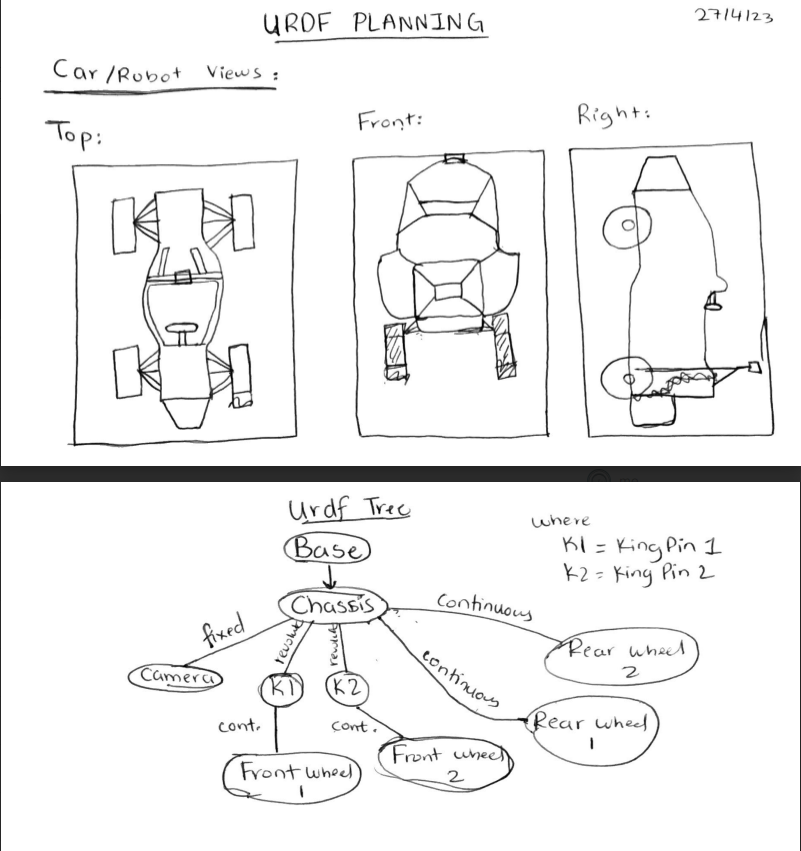 URDF PLANNING
27/4/23
Car/Robot Views:
Top:
Front:
Right:
Urdf Tree
where
K1 = King Pin 1
K2 = King Pin 2
Base
Chassis
fixed
revolute
revolute
continuous
continuous
Camera
K1
K2
Rear wheel
2
cont.
cont.
Rear wheel
1
Front wheel
1
Front wheel
2